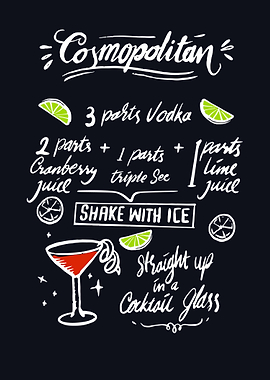 Cosmopolitan
3 parts Vodka
2 parts + 1 parts + 1 parts
Cranberry triple Sec lime
juice juice
SHAKE WITH ICE
Straight up
in a
Cocktail Glass